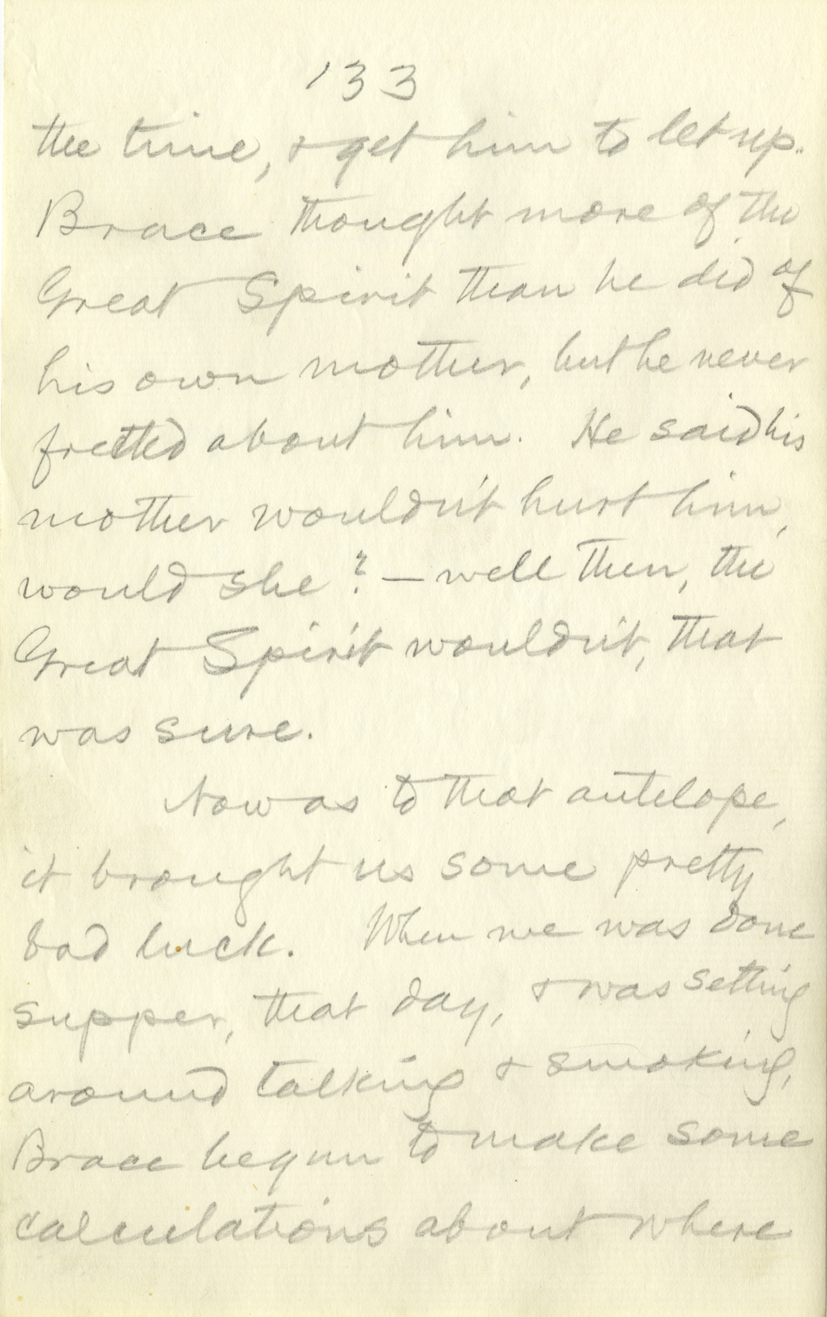 133
the time, & get him to let up.
Brace thought more of the
Great Spirit than he did of
his own mother, but he never
fretted about him. He said his
mother wouldn't hurt him,
would she? — well then, the
Great Spirit wouldn't, that
was sure.
Now as to that antelope,
it brought us some pretty
bad luck. When we was done
supper, that day, & was setting
around talking & smoking,
Brace begun to make some
calculations about where